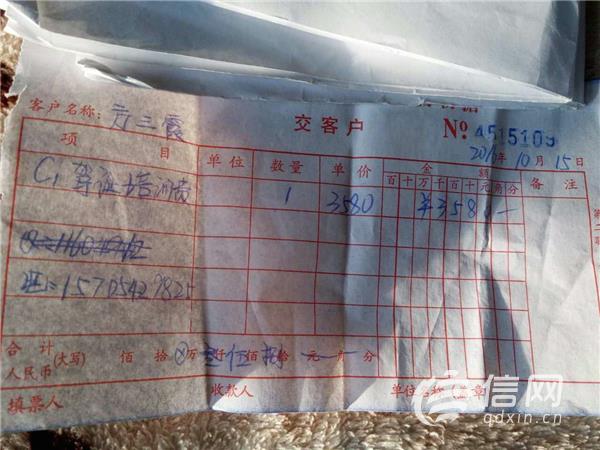 客户名称: 方三霞
交客户
No 4515109
2016年10月15日
项目 单位 数量 单价 金额 备注
百十万千百十元角分
C1 驾证培训费 1 3580 ¥3580—
15705429825
合计
人民币
(大写) 佰 拾 ⊗万 叁仟 伍佰 捌拾 元 角 分
填票人 收款人 单位名称(盖章)
第二联
信网
qdxin.cn